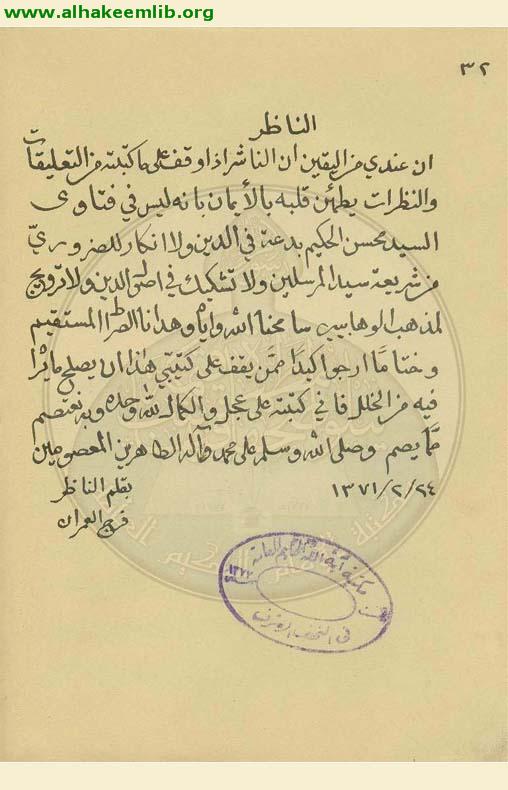 www.alhakeemlib.org
٣٢
الناظر
ان عندي من اليقين ان الناشر اذا وقف على ما كتبته من التعليقات
والنظرات يطمئن قلبه بالأيمان بانه ليس في فتاوى
السيد محسن الحكيم بدعة في الدين ولا انكار للضروريّ
من شريعة سيد المرسلين ولا تشكيك في اصل الدين ولا ترويج
لمذهب الوهابيين سامحنا الله واياه وهدانا الصراط المستقيم
وختامًا ارجو اكيدًا ممّن يقف على كتيبتي هذا ان يصلح ما يرا
فيه من الخلل فاني كتبته على عجل والكمال لله وحده وبه نعتصم
ممّا يصم وصلى الله وسلم على محمد وآله الطاهرين المعصومين
١٣٧١/٢/٢٤ بقلم الناظر
فرج العمران
مكتبة آية الله الحكيم العامة
في النجف الاشرف